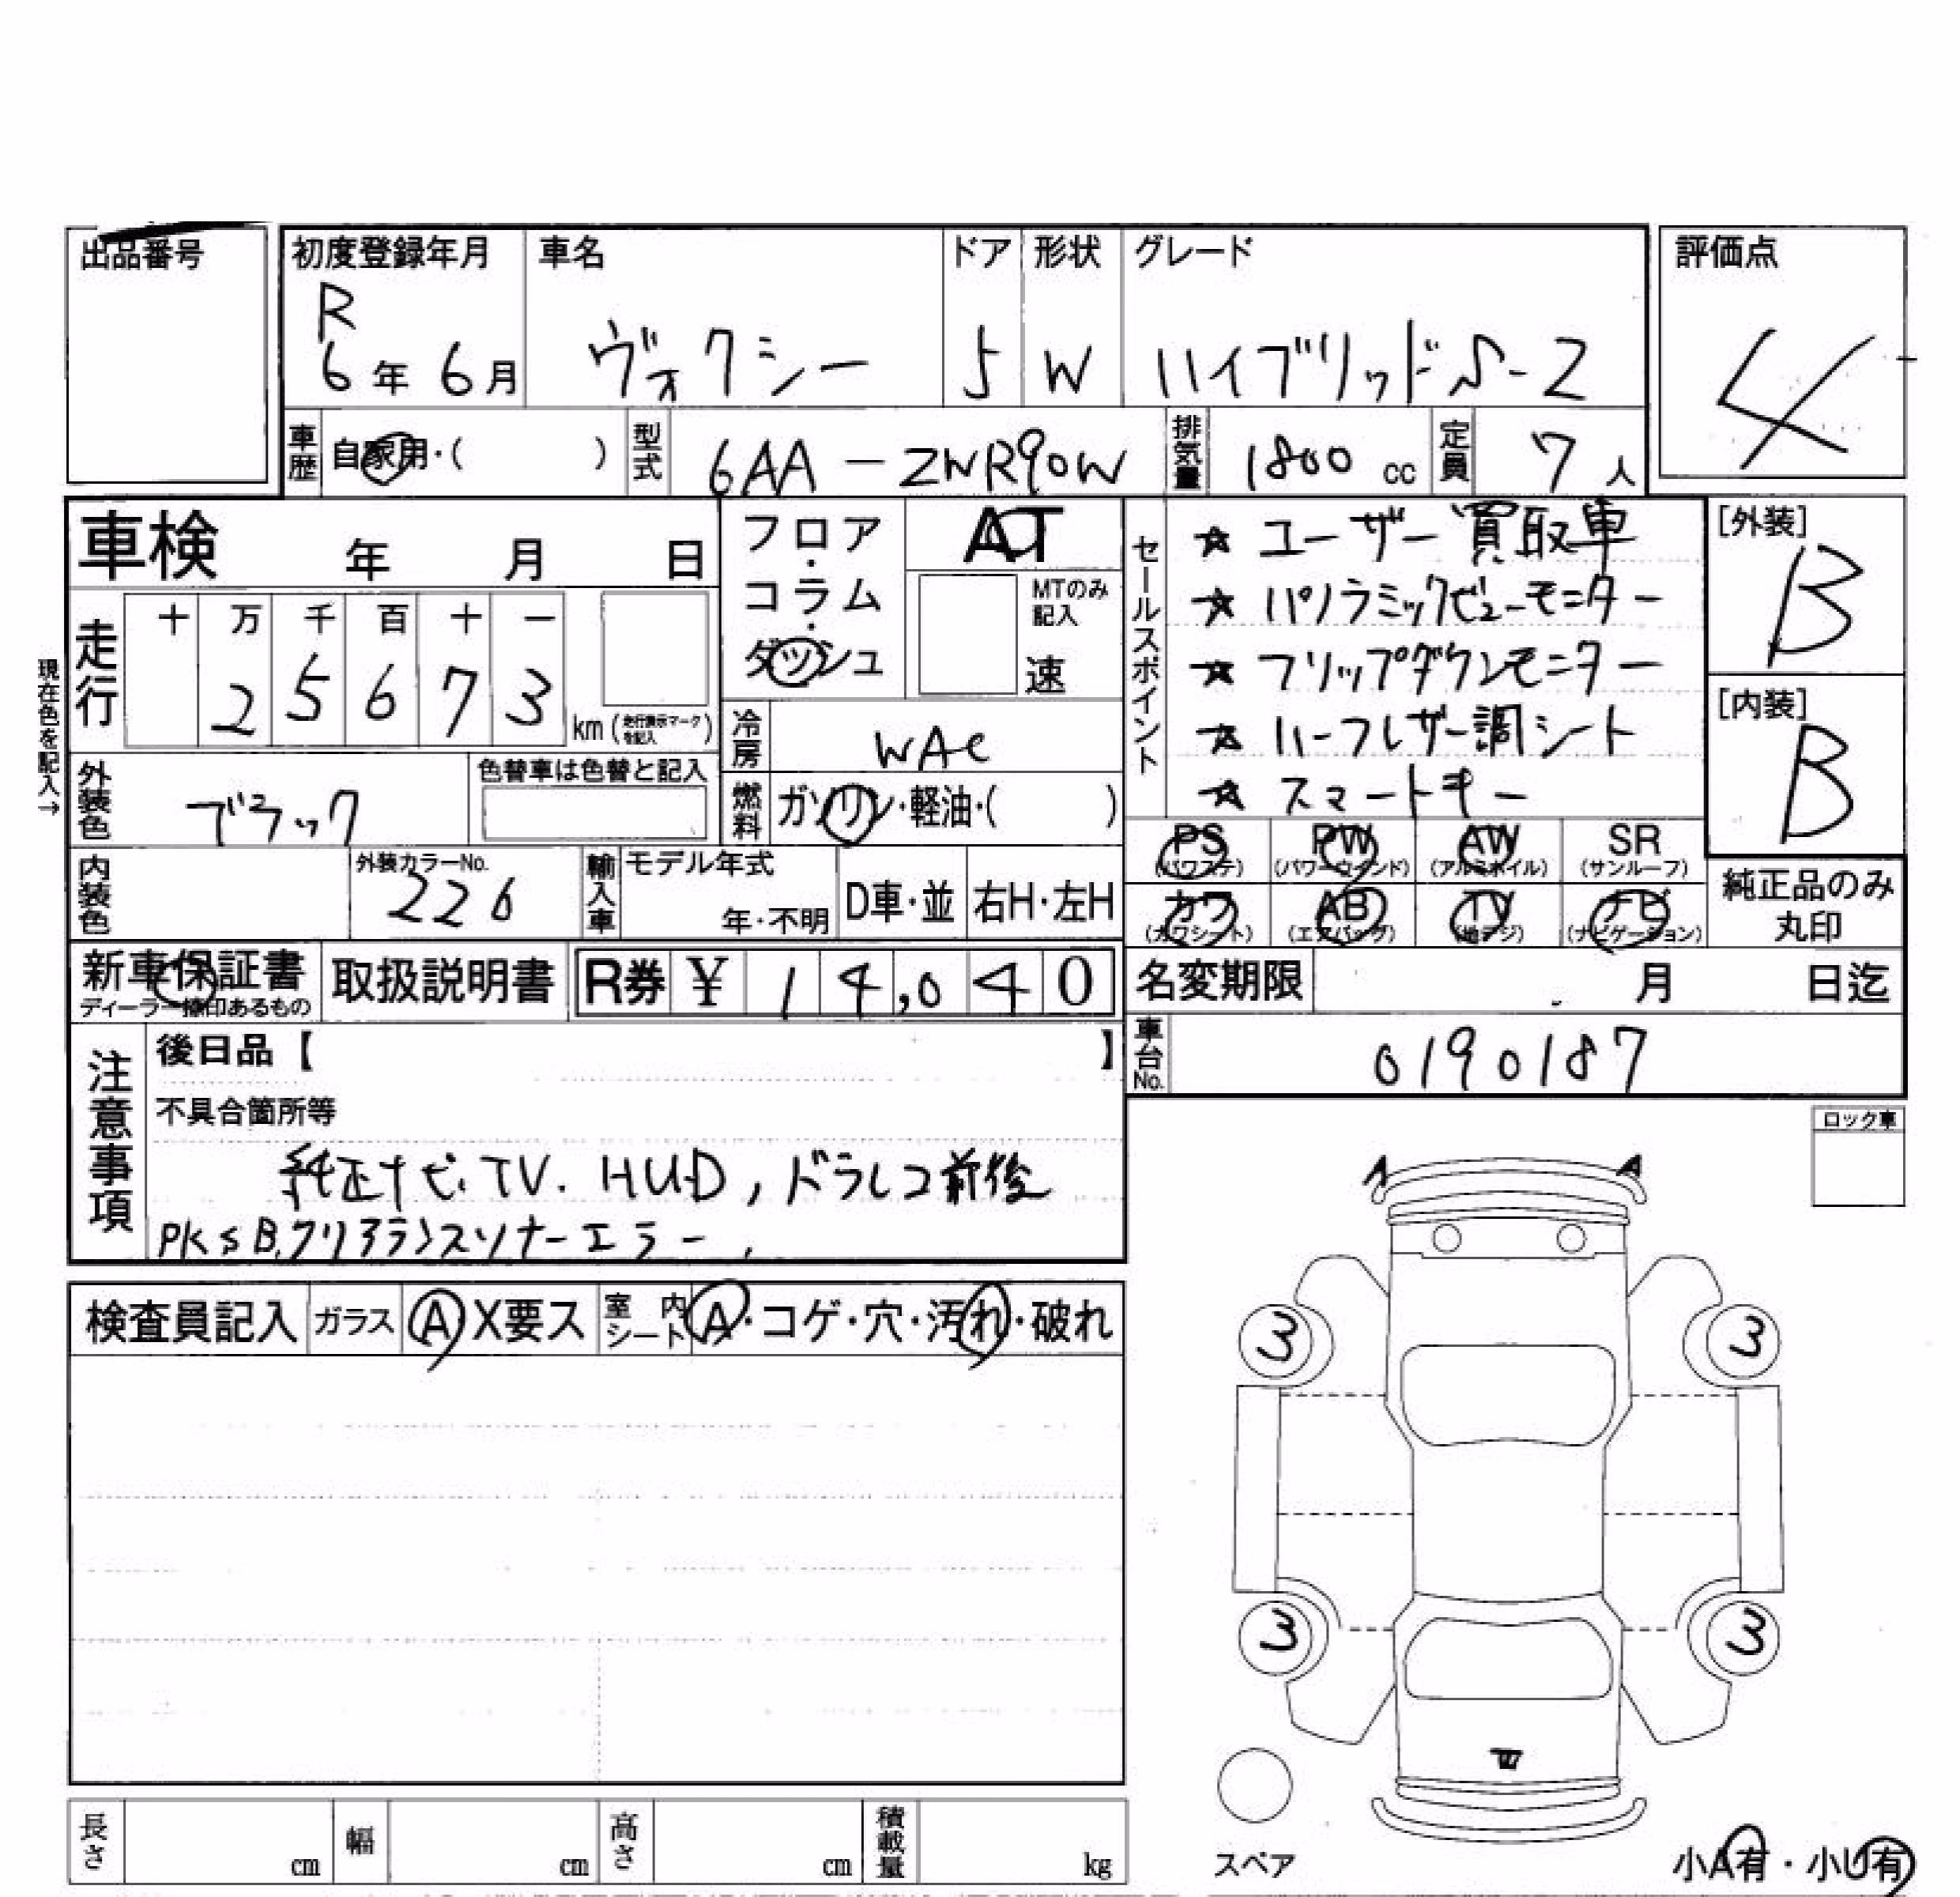 出品番号
初度登録年月
R
6年 6月
車名
ヴォクシー
ドア
5
形状
W
グレード
ハイブリッドS-Z
評価点
4
車歴
自家用・( )
型式
6AA-ZWR90W
排気量
1800 cc
定員
7人
車検 年 月 日
フロア・コラム・ダッシュ
AT
MTのみ記入
速
セールスポイント
☆ ユーザー買取車
☆ パノラミックビューモニター
☆ フリップダウンモニター
☆ ハーフレザー調シート
☆ スマートキー
[外装]
B
[内装]
B
現在色を記入→
走行
十 万 千 百 十 一
2 5 6 7 3
km (走行表示マークを記入)
冷房
WAC
燃料
ガソリン・軽油・( )
外装色
ブラック
色替車は色替と記入
内装色
外装カラーNo.
226
輸入車
モデル年式
年・不明
D車・並
右H・左H
PS (パワステ)
PW (パワーウインド)
AW (アルミホイル)
SR (サンルーフ)
カワ (カワシート)
AB (エアバッグ)
TV (地デジ)
ナビ (ナビゲーション)
純正品のみ丸印
新車保証書
ディーラー捺印あるもの
取扱説明書
R券 ¥ 14,040
名変期限 月 日迄
車台No.
0190187
注意事項
後日品【 】
不具合箇所等
純正ナビ.TV. HUD, ドラレコ前後
PKSB.クリアランスソナーエラー.
ロック車
検査員記入
ガラス
A X要ス
室内シート
A・コゲ・穴・汚れ・破れ
A A
3 3
3 3
スペア
小A有・小U有
長さ cm
幅 cm
高さ cm
積載量 kg